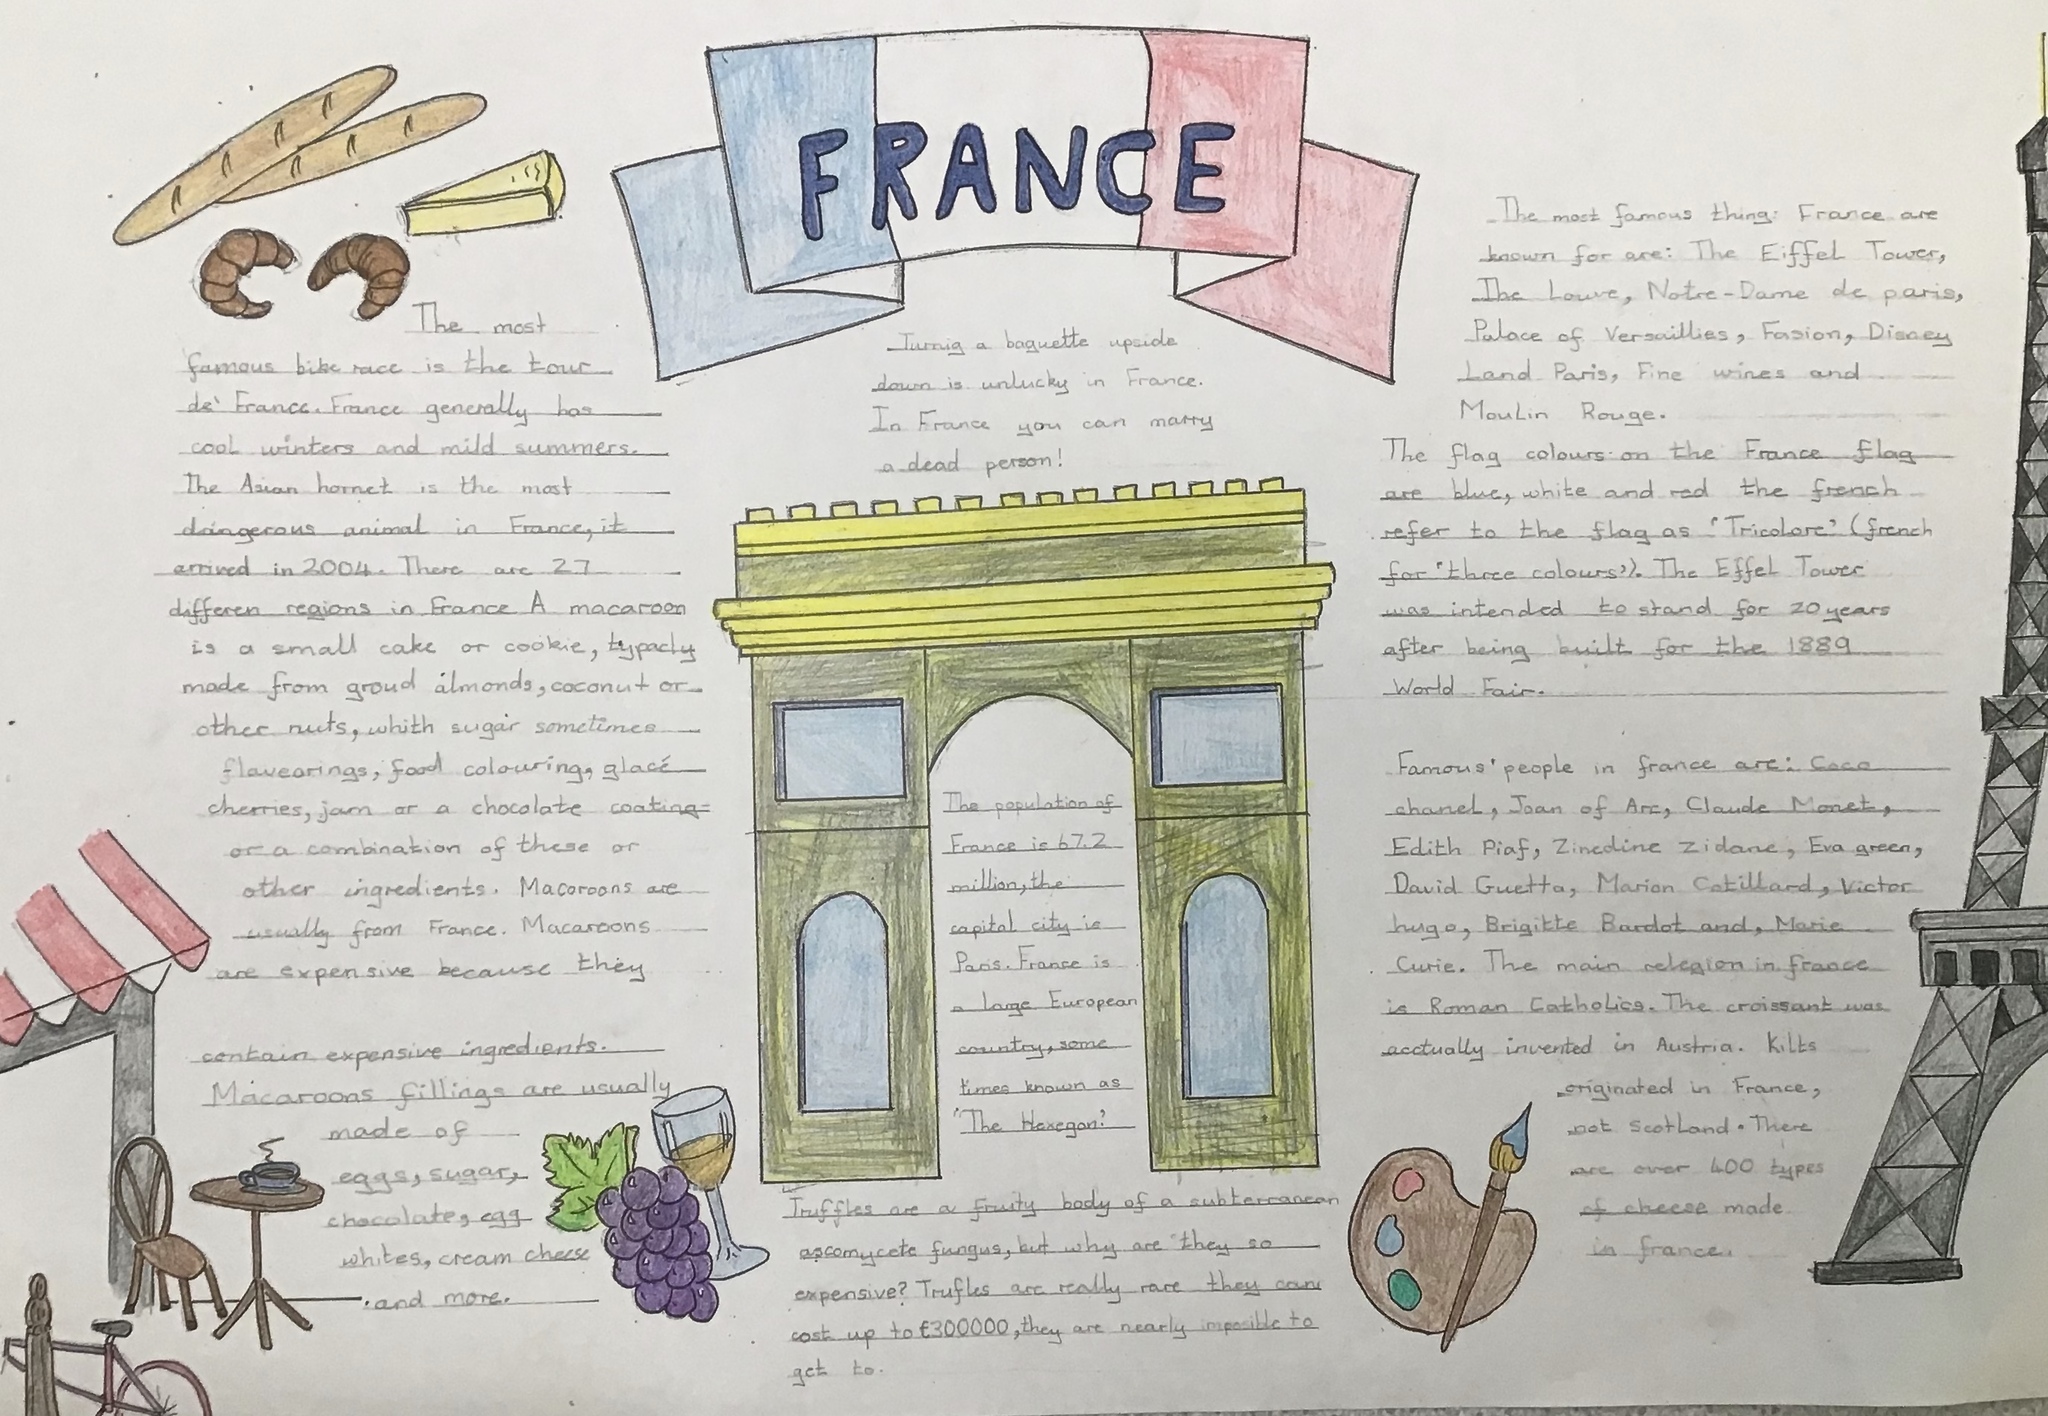 FRANCE
The most
famous bike race is the tour
de' France. France generally has
cool winters and mild summers.
The Asian hornet is the most
dangerous animal in France, it
arrived in 2004. There are 27
differen regions in France A macaroon
is a small cake or cookie, typacly
made from groud almonds, coconut or
other nuts, whith sugar sometimes
flavearings, food colouring, glacé
cherries, jam or a chocolate coating
or a combination of these or
other ingredients. Macoroons are
usually from France. Macaroons
are expensive because they
contain expensive ingredients.
Macaroons fillings are usually
made of
eggs, sugar,
chocolate, egg
whites, cream cheese
and more.
Turnig a baguette upside
down is unlucky in France.
In France you can marry
a dead person!
The population of
France is 67.2
million, the
capital city is
Paris. France is
a large European
country, some
times known as
'The Hexegon'.
Truffles are a fruity body of a subterranean
ascomycete fungus, but why are they so
expensive? Trufles are really rare they can
cost up to £300000, they are nearly imposible to
get to.
The most famous thing: France are
known for are: The Eiffel Tower,
The Louve, Notre-Dame de paris,
Palace of Versaillies, Fasion, Disney
Land Paris, Fine wines and
Moulin Rouge.
The flag colours on the France flag
are blue, white and red the french
refer to the flag as 'Tricolore' (french
for 'three colours'). The Effel Tower
was intended to stand for 20 years
after being built for the 1889
World Fair.
Famous' people in france are: Coco
chanel, Joan of Arc, Claude Monet,
Edith Piaf, Zinedine zidane, Eva green,
David Guetta, Marion Cotillard, Victor
hugo, Brigitte Bardot and, Marie
Curie. The main relegion in france
is Roman Catholics. The croissant was
acctually invented in Austria. Kilts
originated in France,
not Scotland. There
are over 400 types
of cheese made
in france.